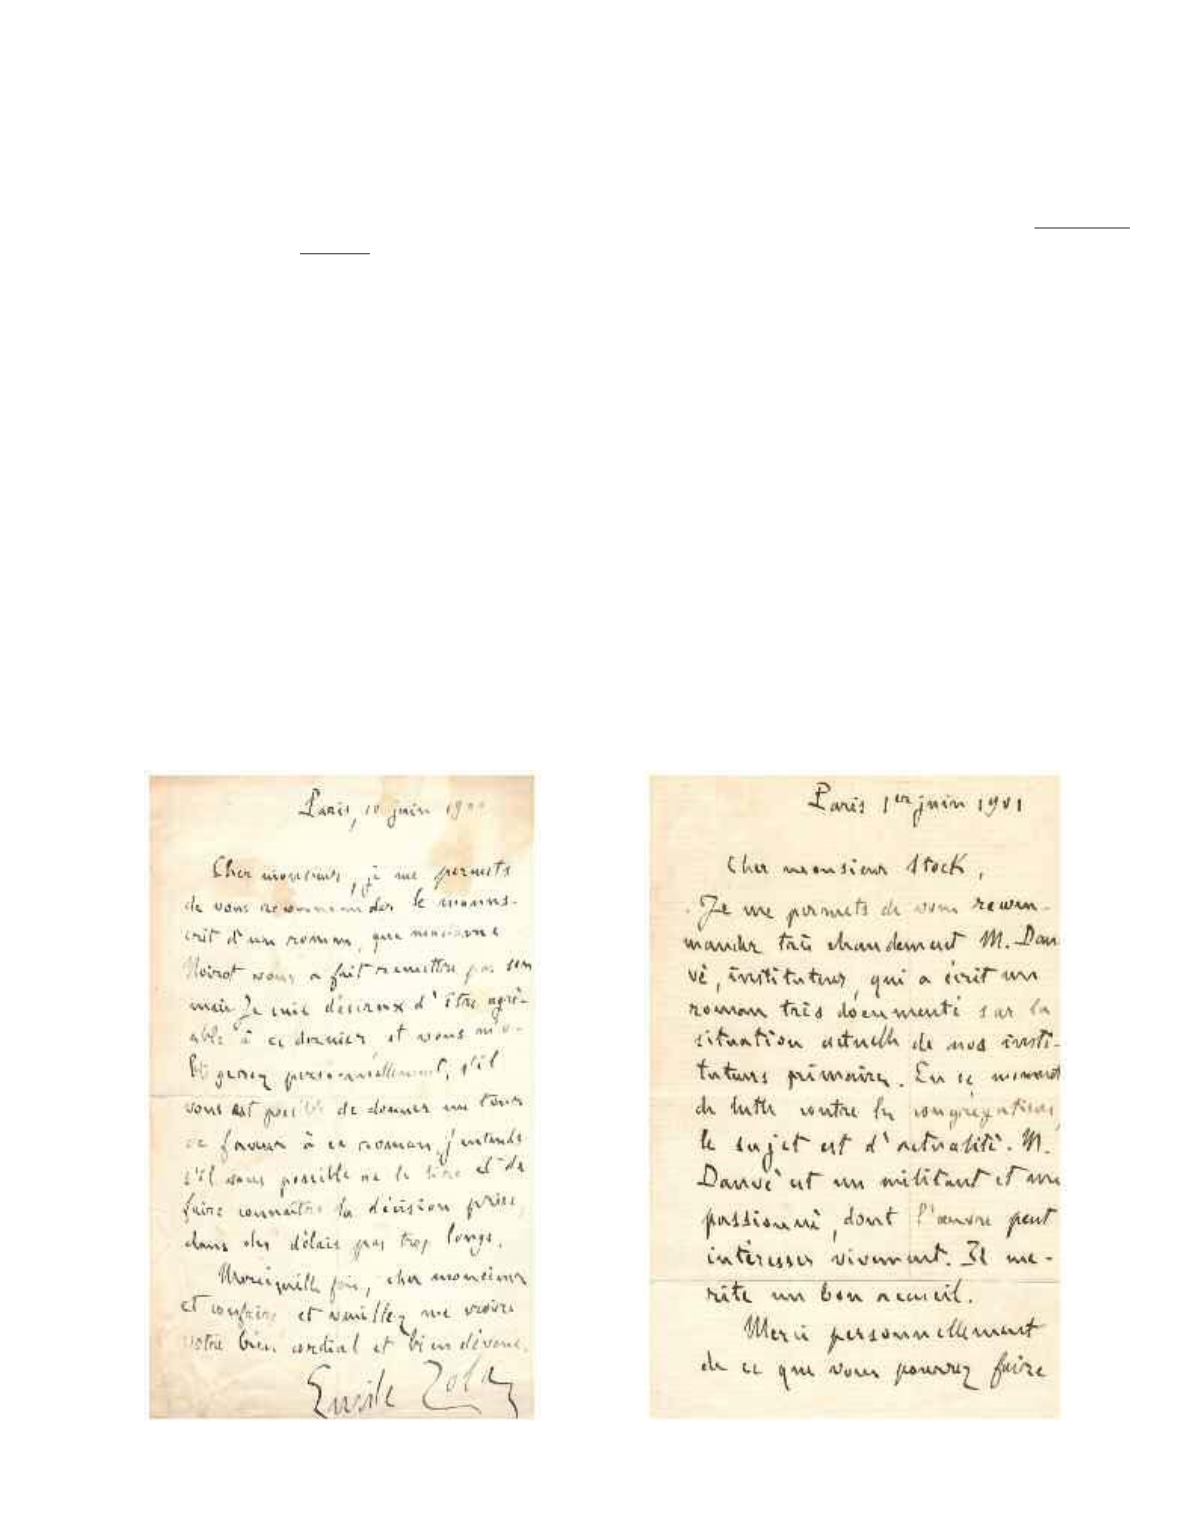 Paris, 10 juin 19
Cher monsieur, je me permets
de vous recommander le manus-
crit d'un roman, que madame
Noirot vous a fait remettre par son
mari. Je suis désireux d'être agré-
able à ce dernier, et vous m'o-
bligerez personnellement, s'il
vous est possible de donner un tour
de faveur à ce roman, j'entends
s'il vous possible de le lire et de
faire connaître la décision prise,
dans des délais pas trop longs.
Merci mille fois, cher monsieur
et confrère et veuillez me croire
votre bien cordial et bien dévoué.
Emile Zola
Paris 1er juin 1901
Cher monsieur Stock,
Je me permets de vous recom-
mander très chaudement M. Dau
vé, instituteur, qui a écrit un
roman très documenté sur la
situation actuelle de nos insti-
tuteurs primaires. En ce moment
de lutte contre les congrégations,
le sujet est d'actualité. M.
Dauvé est un militant et un
passionné, dont l'œuvre peut
intéresser vivement. Il mé-
rite un bon accueil.
Merci personnellement
de ce que vous pourrez faire